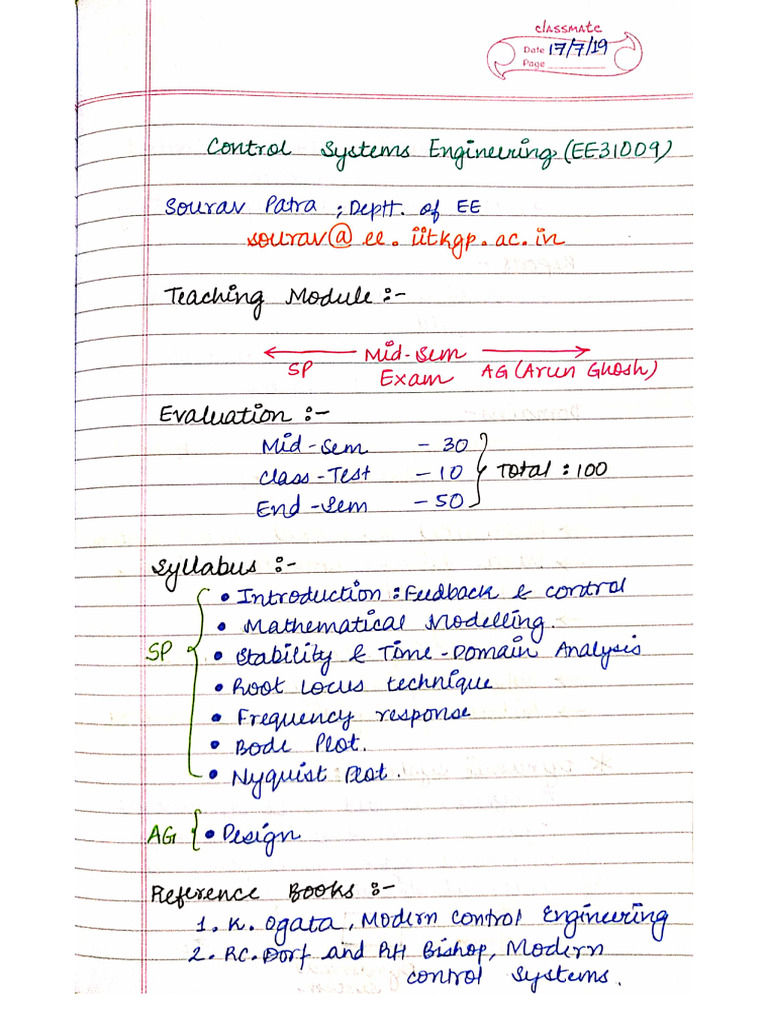 classmate
Date 17/7/19
Page
Control Systems Engineering (EE31009)
Sourav Patra ; Deptt. of EE
sourav@ee.iitkgp.ac.in
Teaching Module :-
← Mid-Sem →
SP Exam AG (Arun Ghosh)
Evaluation :-
Mid-Sem - 30
Class-Test - 10 } Total : 100
End-Sem - 50
Syllabus :-
• Introduction : Feedback & control
• Mathematical Modelling.
SP { • Stability & Time-Domain Analysis
• Root Locus technique
• Frequency response
• Bode Plot.
• Nyquist Plot.
AG { • Design
Reference Books :-
1. K. Ogata, Modern Control Engineering
2. RC. Dorf and RH Bishop, Modern
control systems.